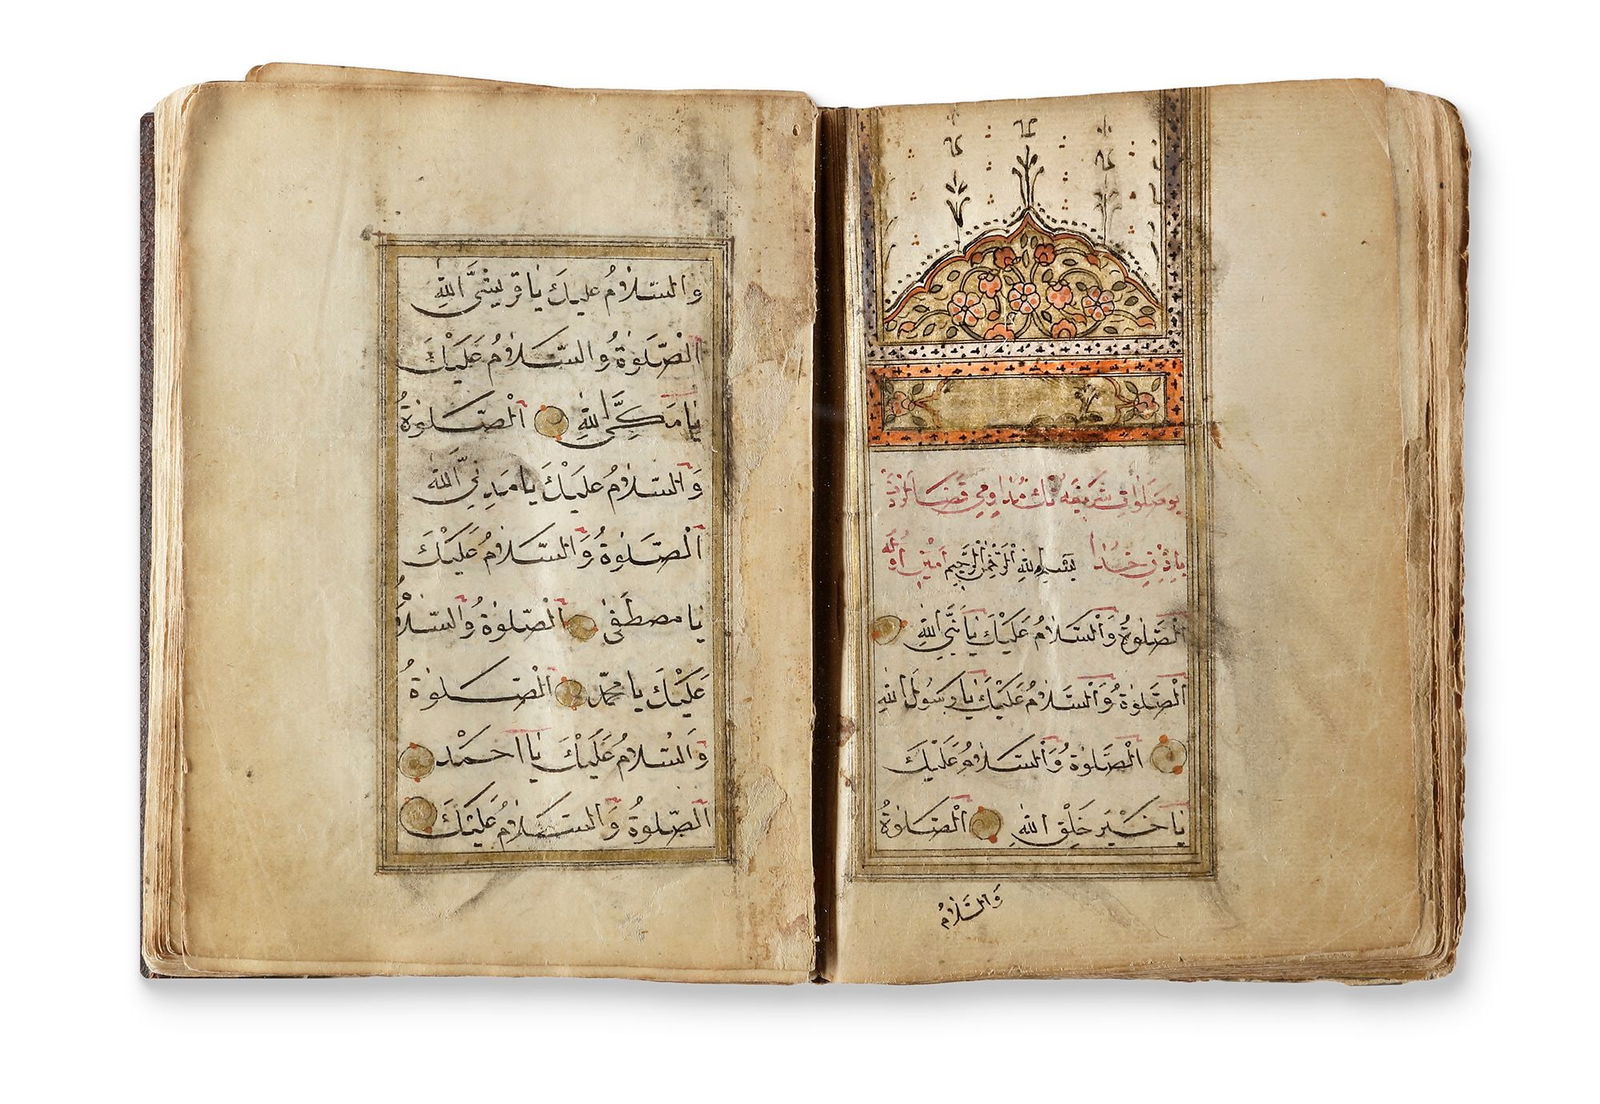 بو صلوات شريفه نك مداومي قضالردن
باذن خدا بسم الله الرحمن الرحيم امين اوله
الصلوة والسلام عليك يا نبي الله
الصلوة والسلام عليك يا رسول الله
الصلوة والسلام عليك
يا خير خلق الله الصلوة
والسلام
والسلام عليك يا قريشي الله
الصلوة والسلام عليك
يا مكي الله الصلوة
والسلام عليك يا مدني الله
الصلوة والسلام عليك
يا مصطفى الصلوة والسلام
عليك يا محمد الصلوة
والسلام عليك يا احمد
الصلوة والسلام عليك